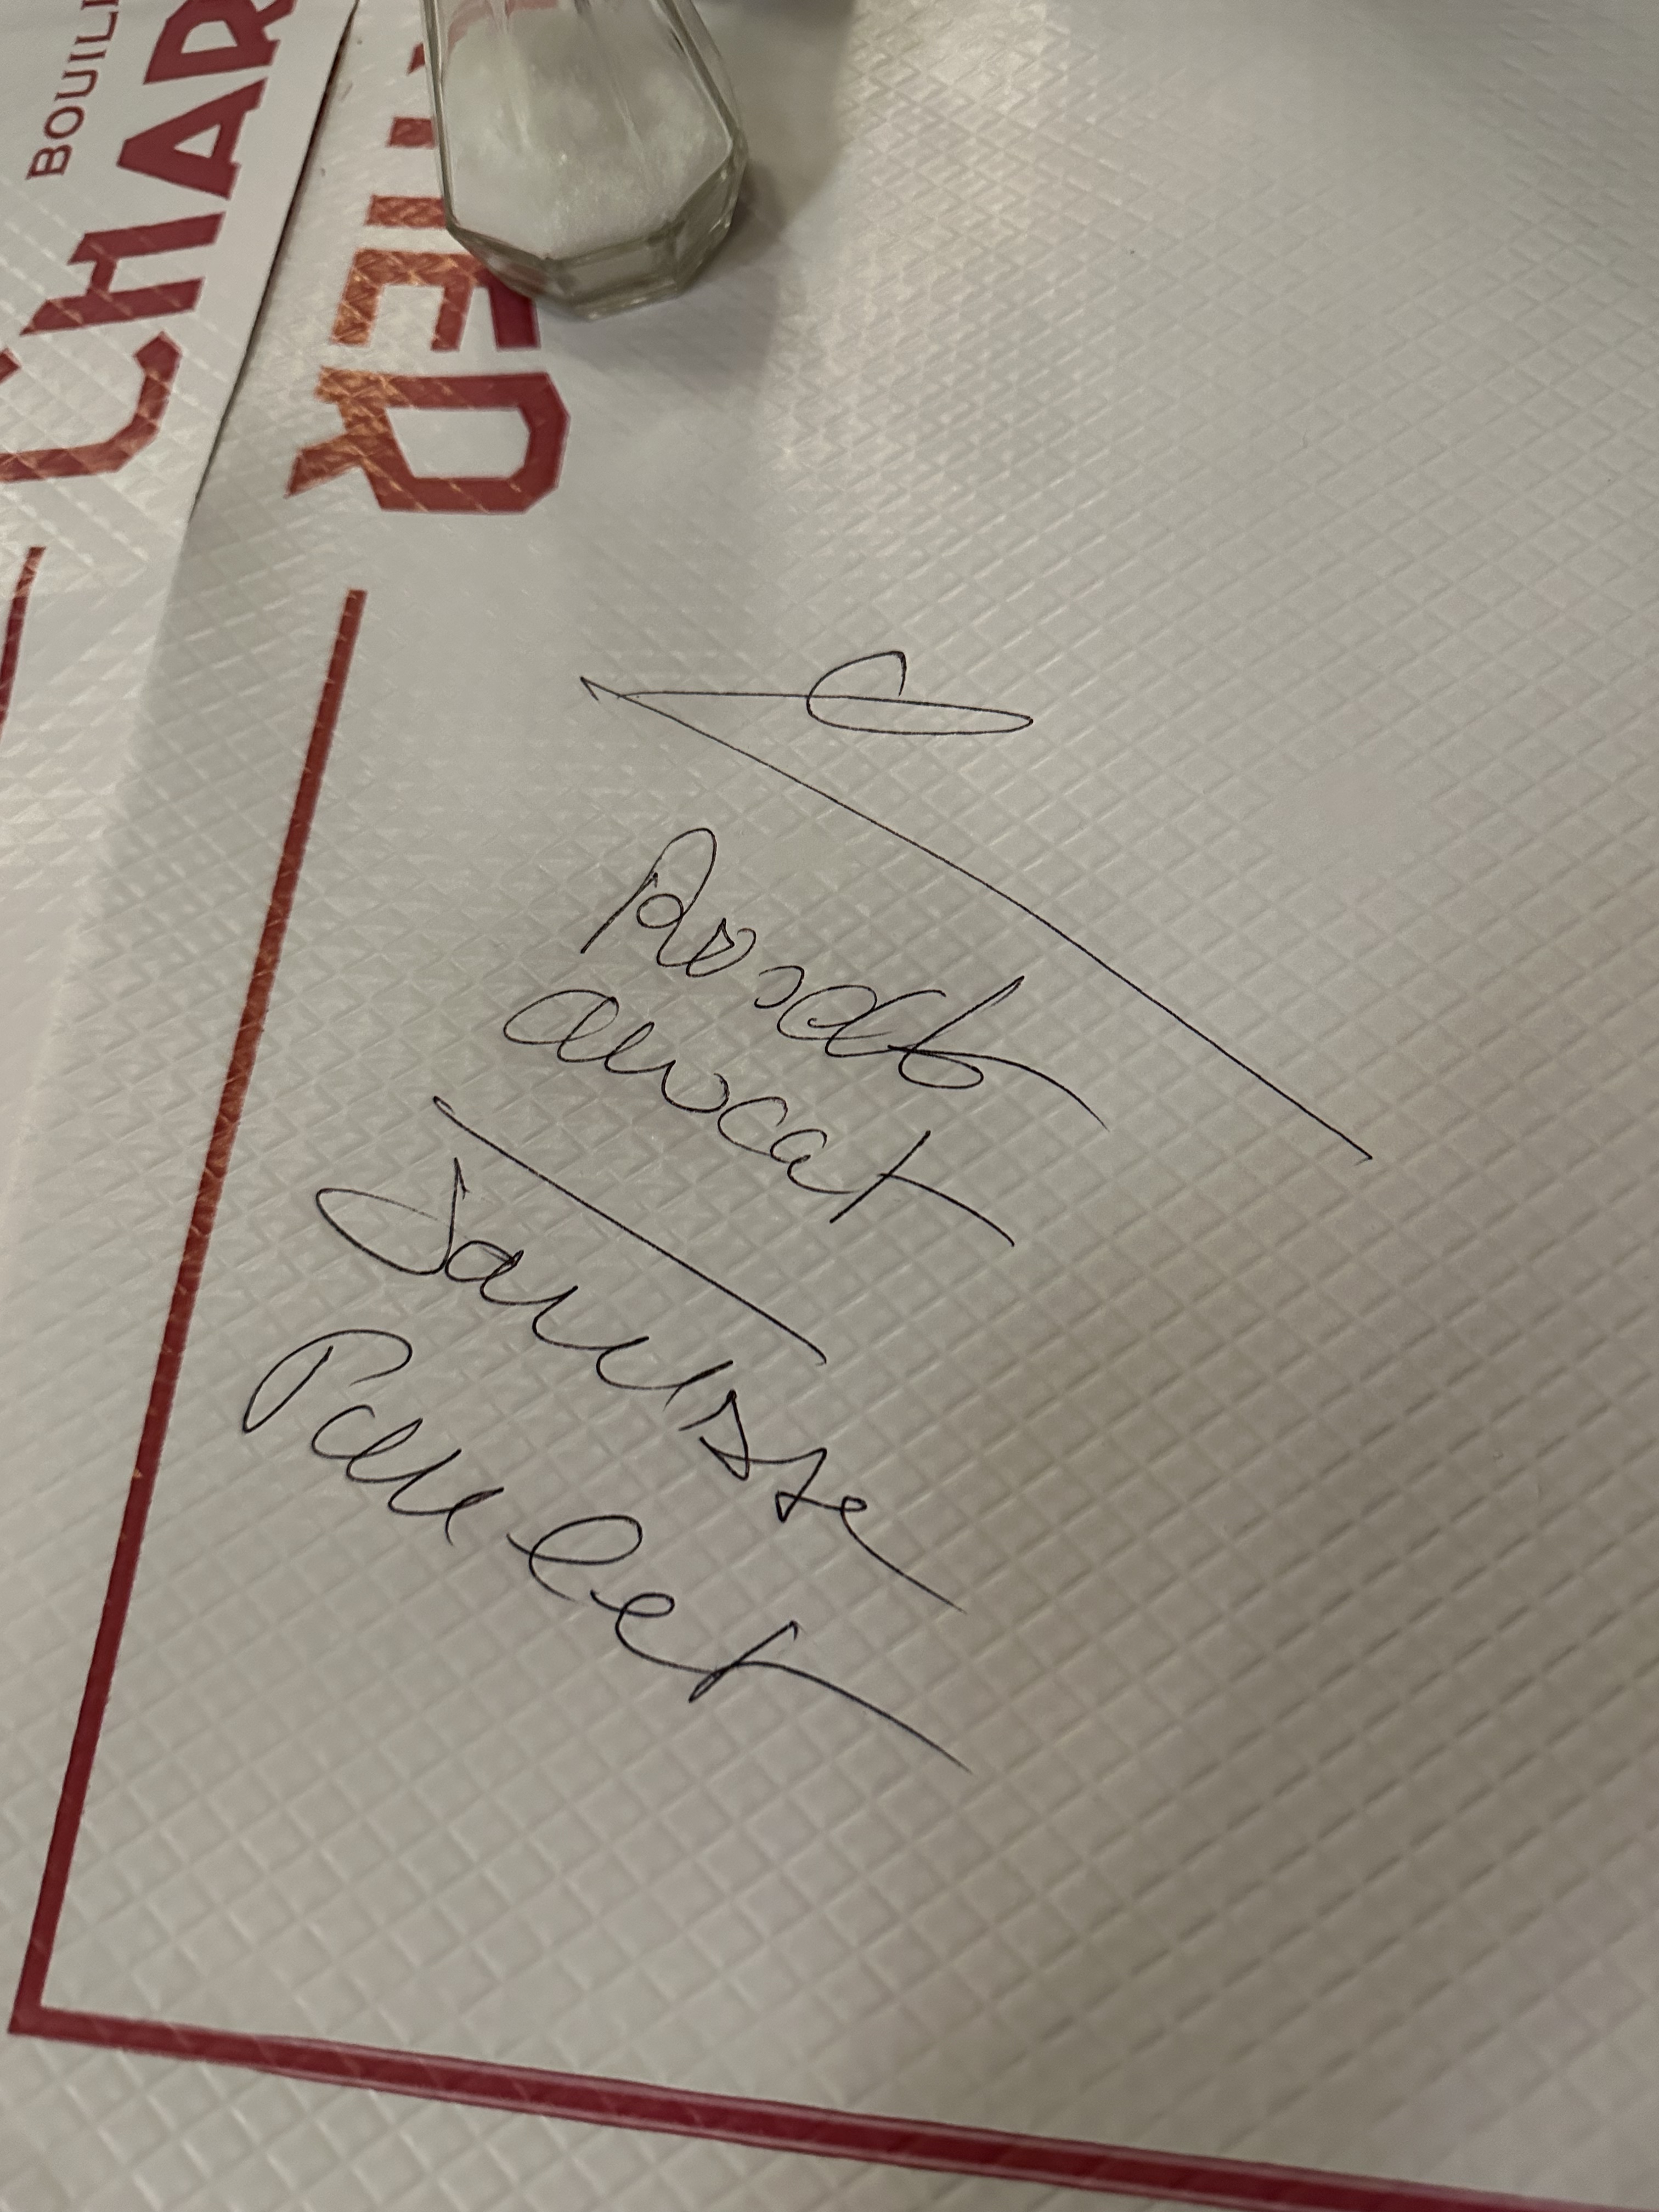 BOUILL
CHAR
TIER
Rosette
avocat
Saucisse
Poulet